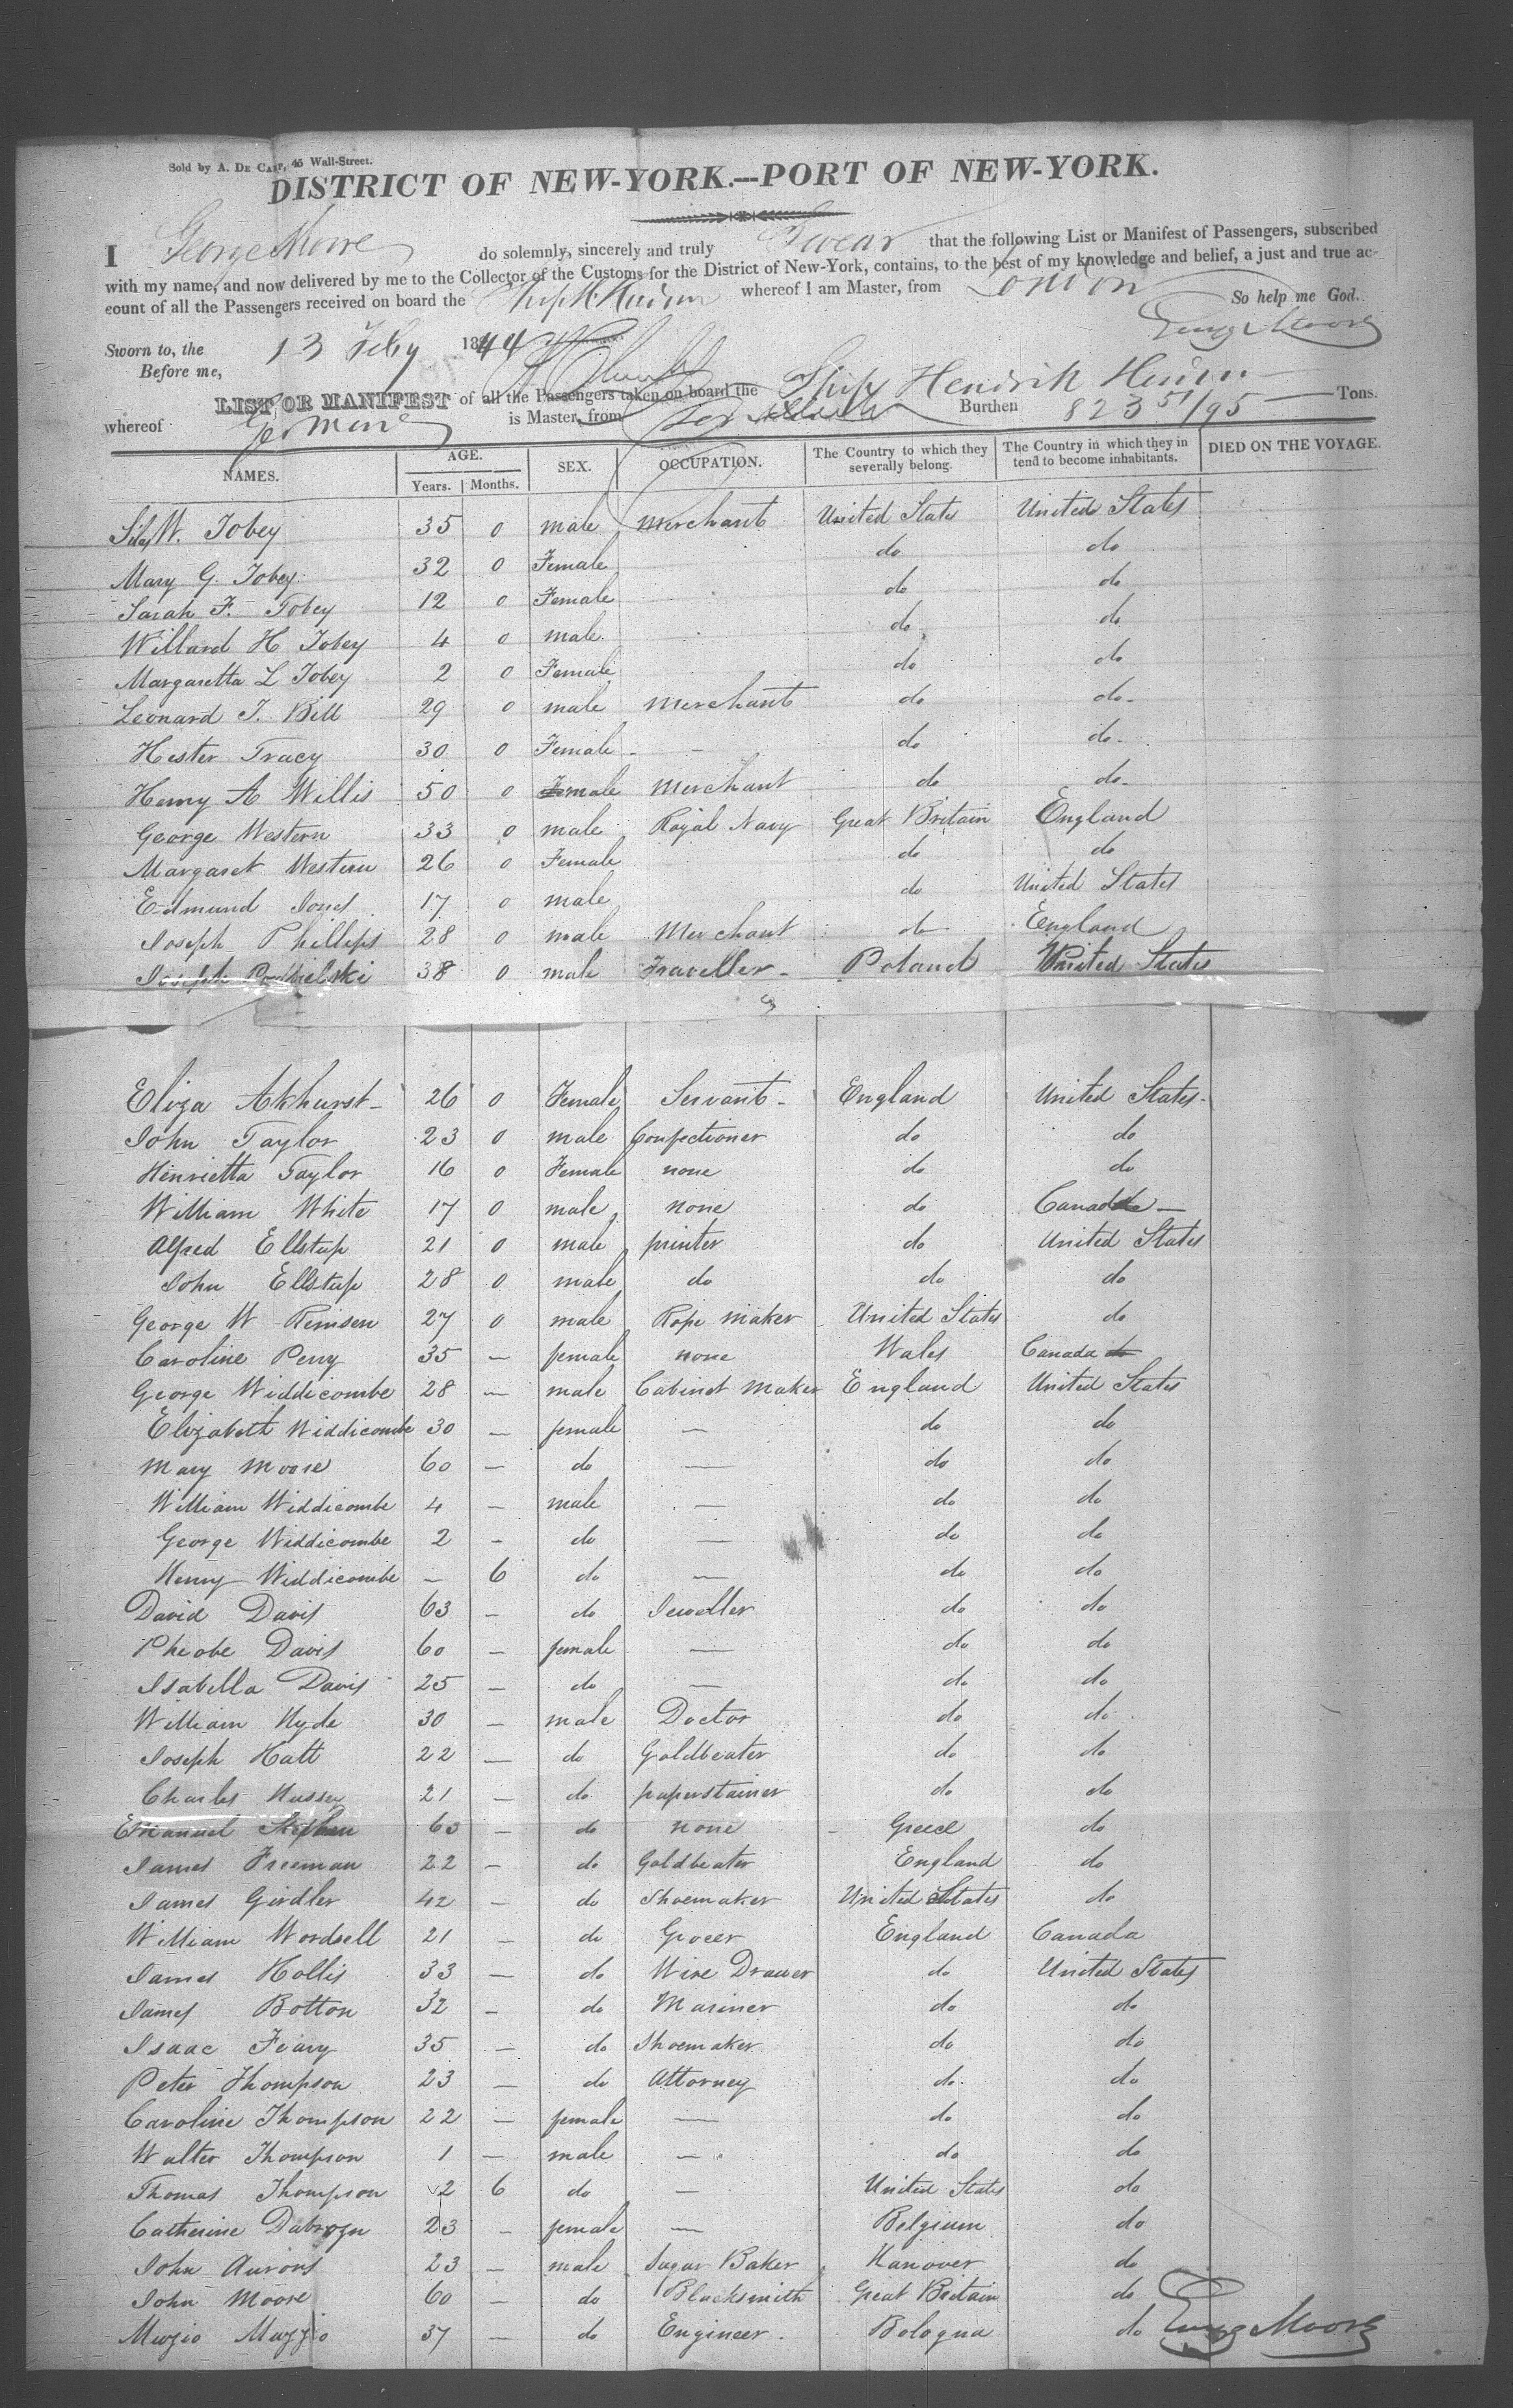 Sold by A. De Camp, 45 Wall-Street.
DISTRICT OF NEW-YORK.—PORT OF NEW-YORK.
I George Moore do solemnly, sincerely and truly Swear that the following List or Manifest of Passengers, subscribed
with my name, and now delivered by me to the Collector of the Customs for the District of New-York, contains, to the best of my knowledge and belief, a just and true ac-
count of all the Passengers received on board the Ship whereof I am Master, from London
So help me God.
Geo Moore
Sworn to, the 13 Feby 1844
Before me,
LIST OR MANIFEST of all the Passengers taken on board the Ship Hendrik Hudson
whereof Geo Moore is Master, from Burthen 823 51/95 Tons.
NAMES. AGE. Years. Months. SEX. OCCUPATION. The Country to which they severally belong. The Country in which they intend to become inhabitants. DIED ON THE VOYAGE.
Silas W. Tobey 35 0 male merchant United States United States
Mary G. Tobey 32 0 Female do do
Sarah F. Tobey 12 0 Female do do
Willard H Tobey 4 0 male do do
Margaretta L Tobey 2 0 Female do do
Leonard T. Bill 29 0 male merchant do do
Hester Tracy 30 0 Female - - do do
Henry A Willis 50 0 male merchant do do
George Western 33 0 male Royal Navy Great Britain England
Margaret Western 26 0 Female do do
Edmund Jones 17 0 male do United States
Joseph Phillips 28 0 male Merchant do England
Joseph 38 0 male Traveller - Poland United States
Eliza Akhurst - 26 0 Female Servant - England United States -
John Taylor 23 0 male Confectioner do do
Henrietta Taylor 16 0 Female none do do
William White 17 0 male none do Canada —
Alfred Ellstup 21 0 male printer do United States
John Ellstup 28 0 male do do do
George W Remsen 27 0 male Rope maker United States do
Caroline Perry 35 — female none Wales Canada
George Widdicombe 28 — male Cabinet Maker England United States
Elizabeth Widdicombe 30 — female — do do
Mary Moore 60 — do — do do
William Widdicombe 4 — male — do do
George Widdicombe 2 - do — do do
Henry Widdicombe — 6 do — do do
David Davis 63 — do Jeweller do do
Pheobe Davis 60 — female — do do
Isabella Davis 25 — do — do do
William Hyde 30 — male Doctor do do
Joseph Hatt 22 — do Goldbeater do do
Charles Hussey 21 — do paperstainer do do
Emanuel Stephen 60 — do none Greece do
James Freeman 22 — do Goldbeater England do
James Girdler 42 — do Shoemaker United States do
William Wordsell 21 — do Grocer England Canada
James Hollis 33 — do Wire Drawer do United States
James Botton 32 — do Mariner do do
Isaac Feary 35 — do Shoemaker do do
Peter Thompson 23 — do Attorney do do
Caroline Thompson 22 — female — do do
Walter Thompson 1 — male — do do
Thomas Thompson 2 6 do — United States do
Catherine 23 — female — Belgium do
John Aurons 23 — male Sugar Baker Hanover do
John Moore 60 — do Blacksmith Great Britain do
Muzio Muzzio 37 — do Engineer. Bologna do
Geo Moore